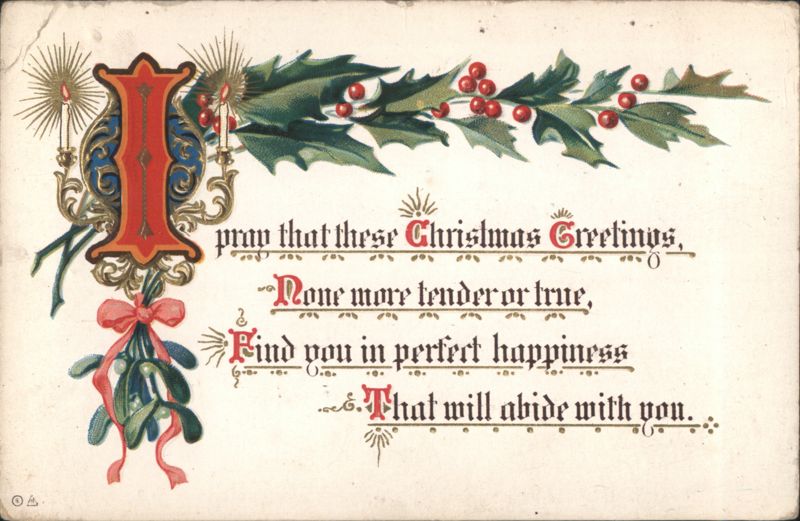 I pray that these Christmas Greetings,
None more tender or true,
Find you in perfect happiness
That will abide with you.